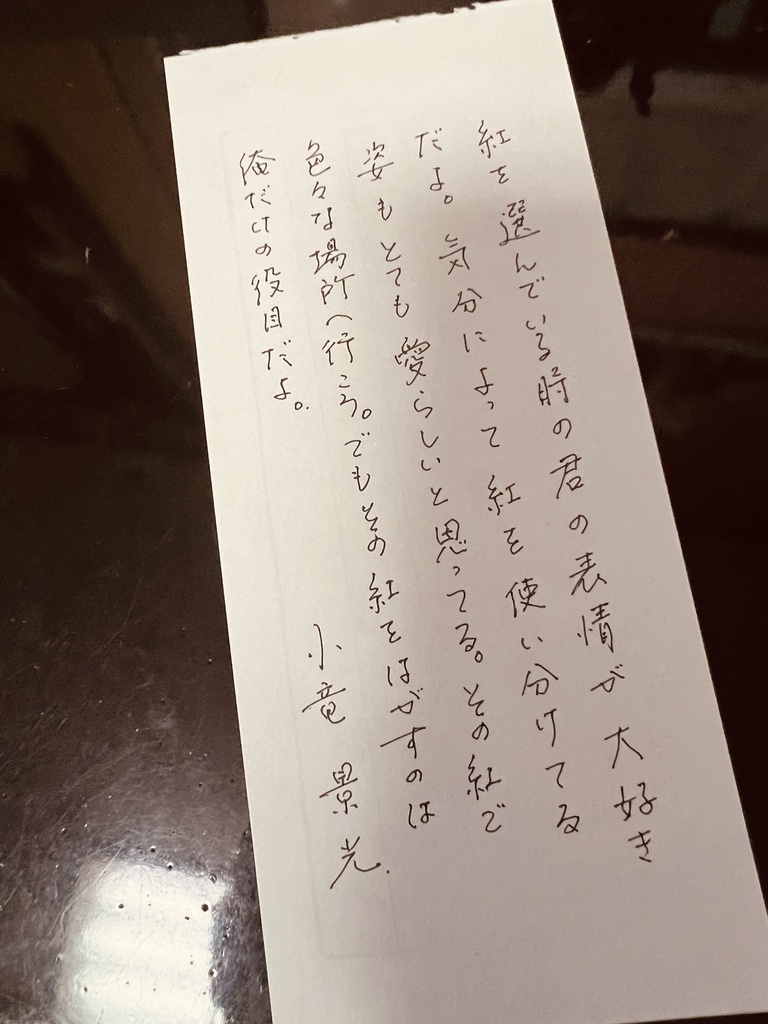 紅を選んでいる時の君の表情が大好き
だよ。気分によって紅を使い分けてる
姿もとても愛らしいと思ってる。その紅で
色々な場所へ行こう。でもその紅をはがすのは
俺だけの役目だよ。
小竜景光.